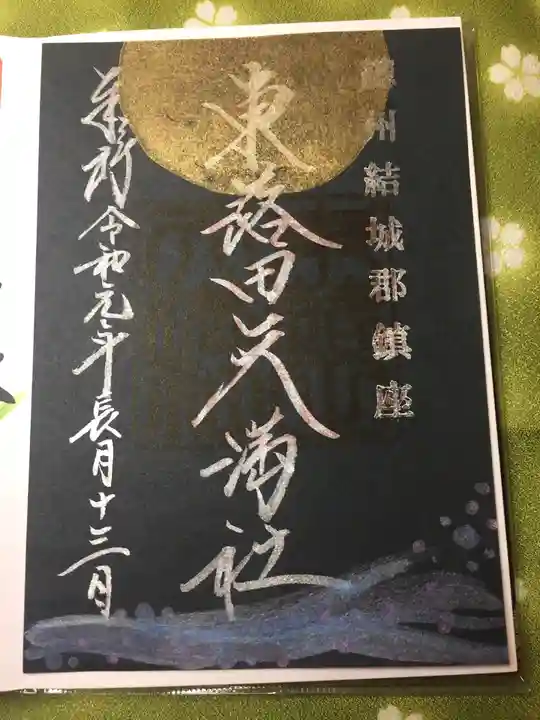 總州結城郡鎮座
東蕗田天満社
奉祈令和元年長月十三日